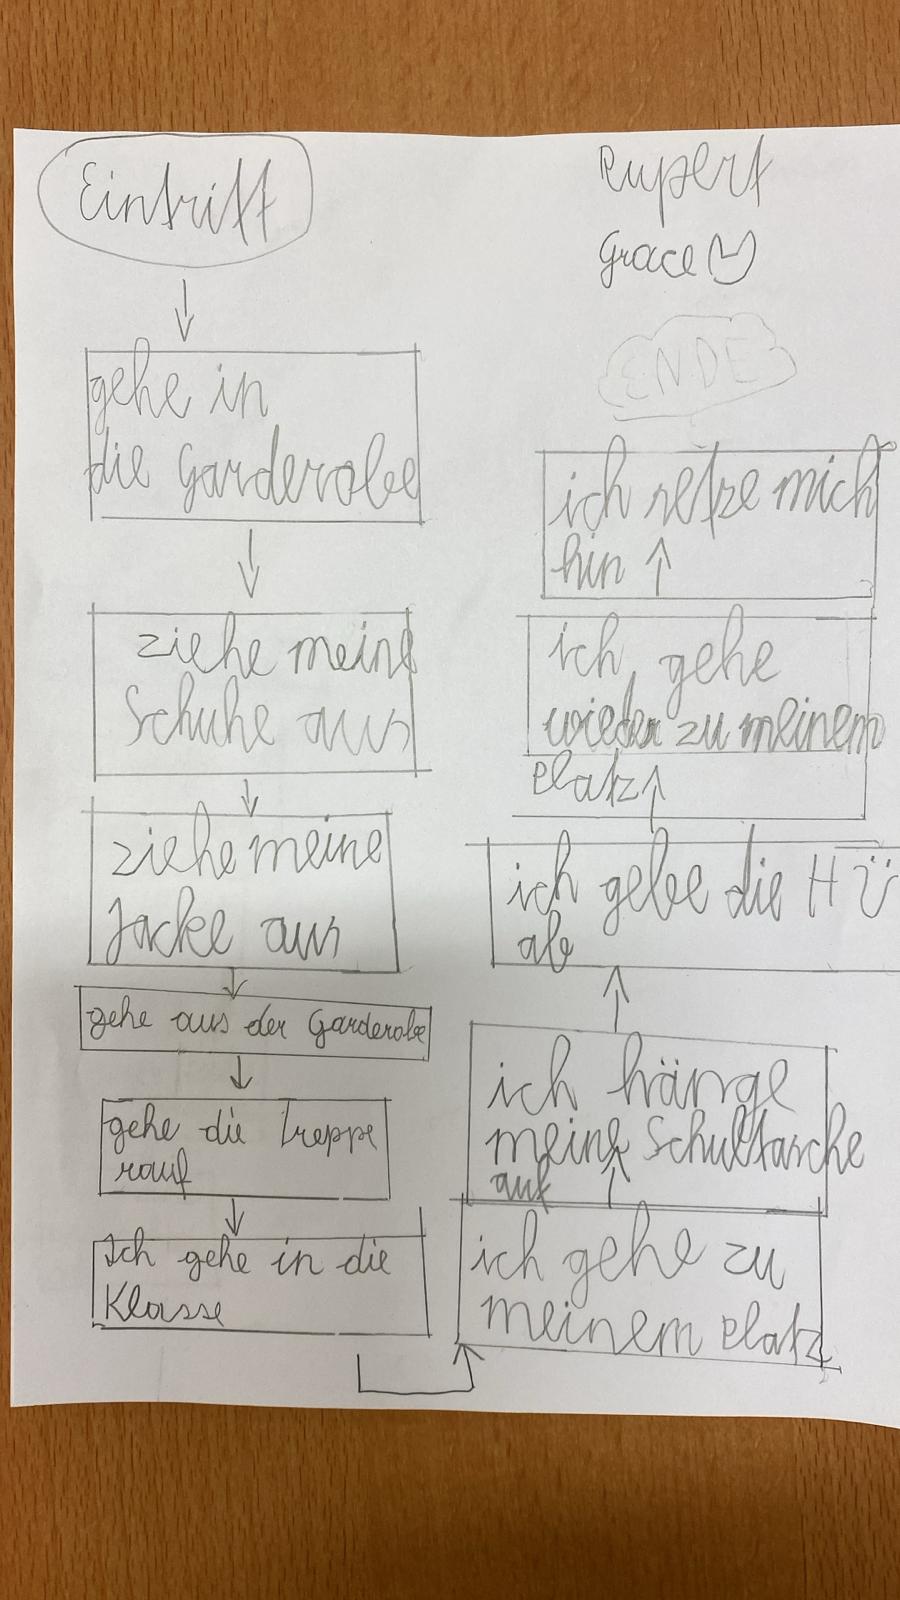 Eintritt
gehe in
die Garderobe
ziehe meine
Schuhe aus
ziehe meine
Jacke aus
gehe aus der Garderobe
gehe die Treppe
rauf
Ich gehe in die
Klasse
ich gehe zu
meinem Platz
ich hänge
meine Schultasche
auf
ich gebe die HÜ
ab
ich gehe
wieder zu meinem
Platz
ich setze mich
hin
ENDE
Rupert
Grace